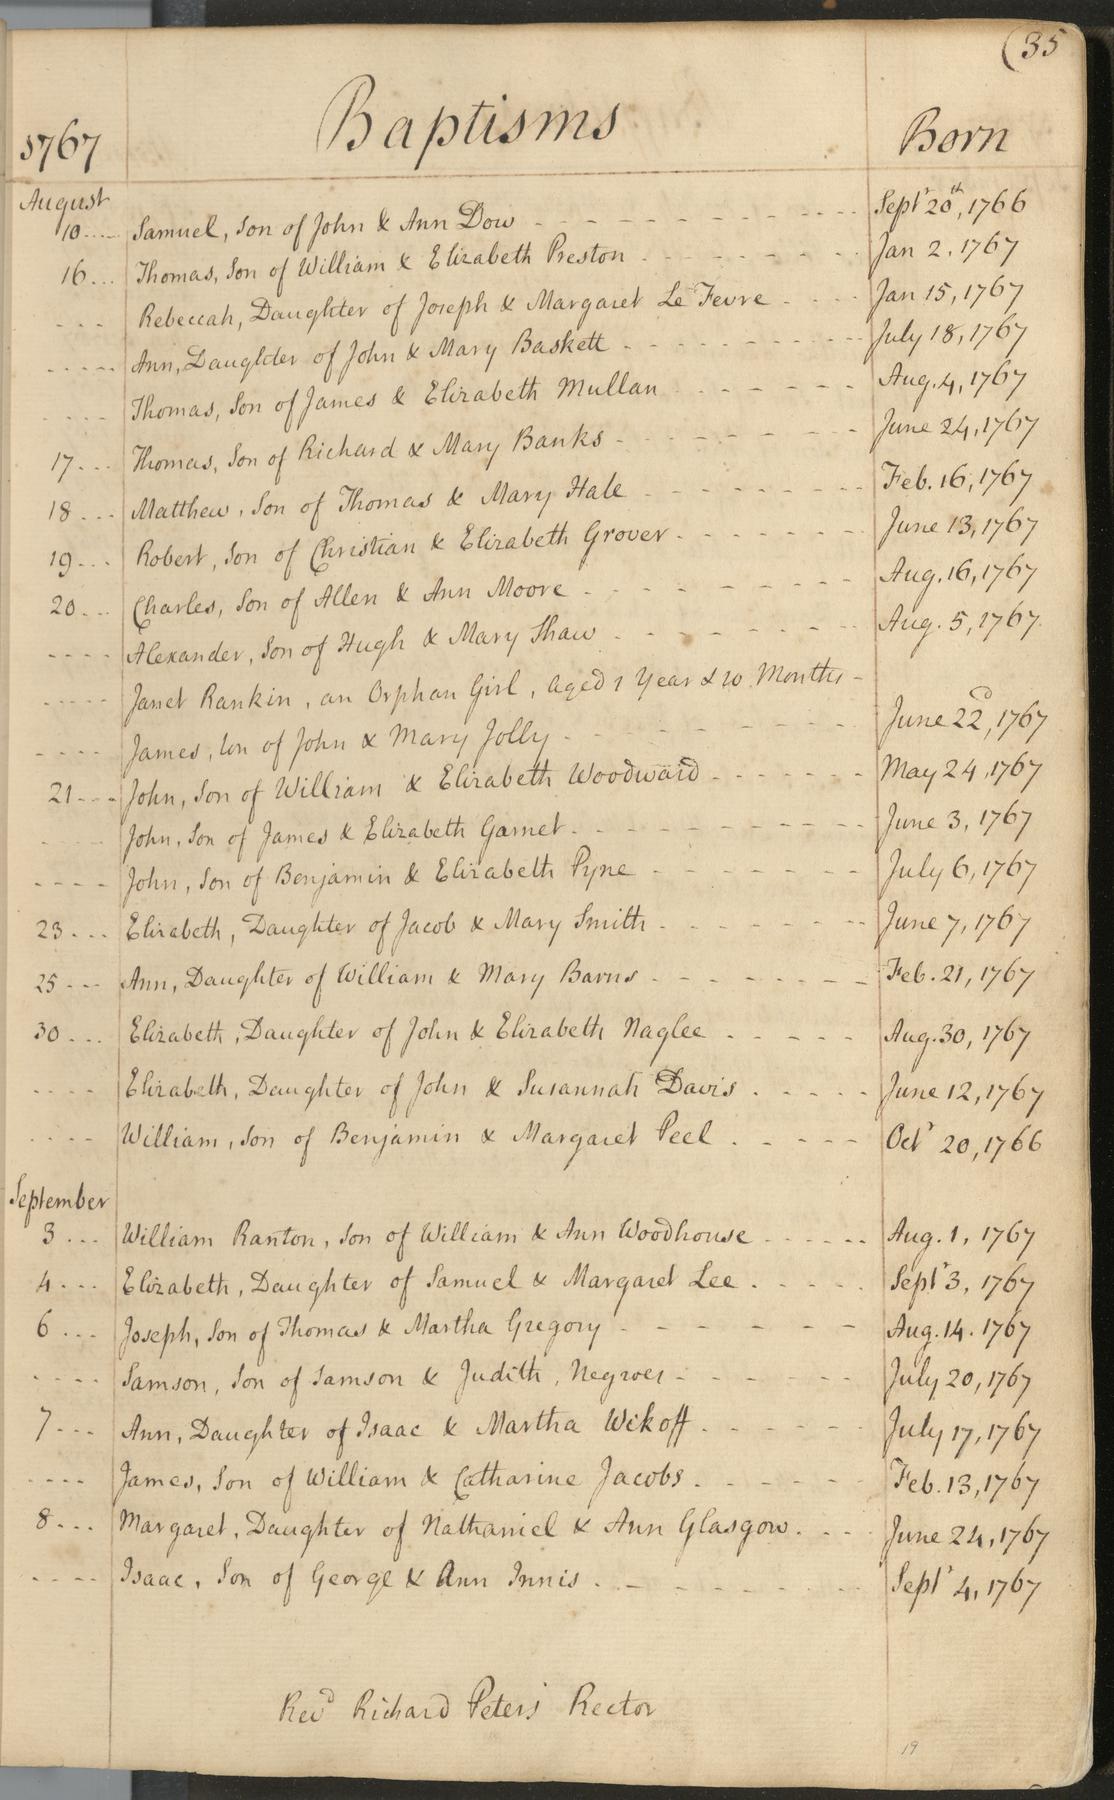 (35
1767 Baptisms Born
August
10 Samuel, Son of John & Ann Dow Septr 20th, 1766
16 Thomas, Son of William & Elizabeth Preston Jan 2. 1767
Rebeccah, Daughter of Joseph & Margaret Le Fevre Jan 15, 1767
Ann, Daughter of John & Mary Baskett July 18, 1767
Thomas, Son of James & Elizabeth Mullan Aug. 4, 1767
17 Thomas, Son of Richard & Mary Banks June 24, 1767
18 Matthew, Son of Thomas & Mary Hale Feb. 16, 1767
19 Robert, Son of Christian & Elizabeth Grover June 13, 1767
20 Charles, Son of Allen & Ann Moore Aug. 16, 1767
Alexander, Son of Hugh & Mary Shaw Aug. 5, 1767.
Janet Rankin, an Orphan Girl, aged 1 Year & 10 Months
James, Son of John & Mary Jolly June 22d, 1767
21 John, Son of William & Elizabeth Woodward May 24, 1767
John, Son of James & Elizabeth Garnet June 3, 1767
John, Son of Benjamin & Elizabeth Pyne July 6, 1767
23 Elizabeth, Daughter of Jacob & Mary Smith June 7, 1767
25 Ann, Daughter of William & Mary Barns Feb. 21, 1767
30 Elizabeth, Daughter of John & Elizabeth Naglee Aug. 30, 1767
Elizabeth, Daughter of John & Susannah Davis June 12, 1767
William, Son of Benjamin & Margaret Peel Octr 20, 1766
September
3 William Ranton, Son of William & Ann Woodhouse Aug. 1, 1767
4 Elizabeth, Daughter of Samuel & Margaret Lee Septr 3, 1767
6 Joseph, Son of Thomas & Martha Gregory Aug. 14. 1767
Samson, Son of Samson & Judith, Negroes July 20, 1767
7 Ann, Daughter of Isaac & Martha Wikoff July 17, 1767
James, Son of William & Catharine Jacobs Feb. 13, 1767
8 Margaret, Daughter of Nathaniel & Ann Glasgow June 24, 1767
Isaac, Son of George & Ann Innis Septr 4, 1767
Revd Richard Peters Rector
19